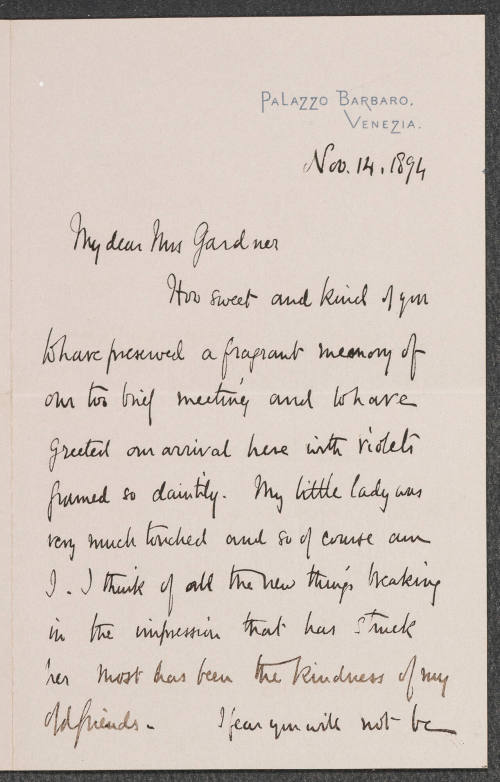 PALAZZO BARBARO.
VENEZIA.
Nov. 14. 1894
My dear Mrs Gardner
How sweet and kind of you
to have preserved a fragrant memory of
our too brief meeting and to have
greeted our arrival here with violets
framed so daintily. My little lady was
very much touched and so of course am
I. I think of all the new things breaking
in the impression that has struck
her most has been the kindness of my
old friends. I fear you will not be